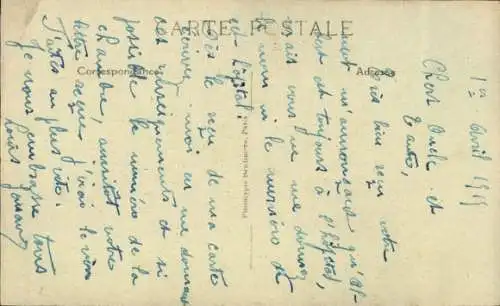 CARTE POSTALE
Correspondance
Adresse
1er Avril 1919
Chers Oncle et
Tante,
J'ai bien reçu votre
mot m'annonçant qu'Al-
bert est toujours à l'hôpital,
mais vous ne me donnez
le nom ni le numéro de
cet hôpital.
Dès le reçu de ma carte
écrivez-moi en me donnant
ces renseignements et si
possible le numéro de la
chambre, aussitôt votre
lettre reçue j'irai le voir
Faites au plus vite.
Je vous embrasse tous
Louis